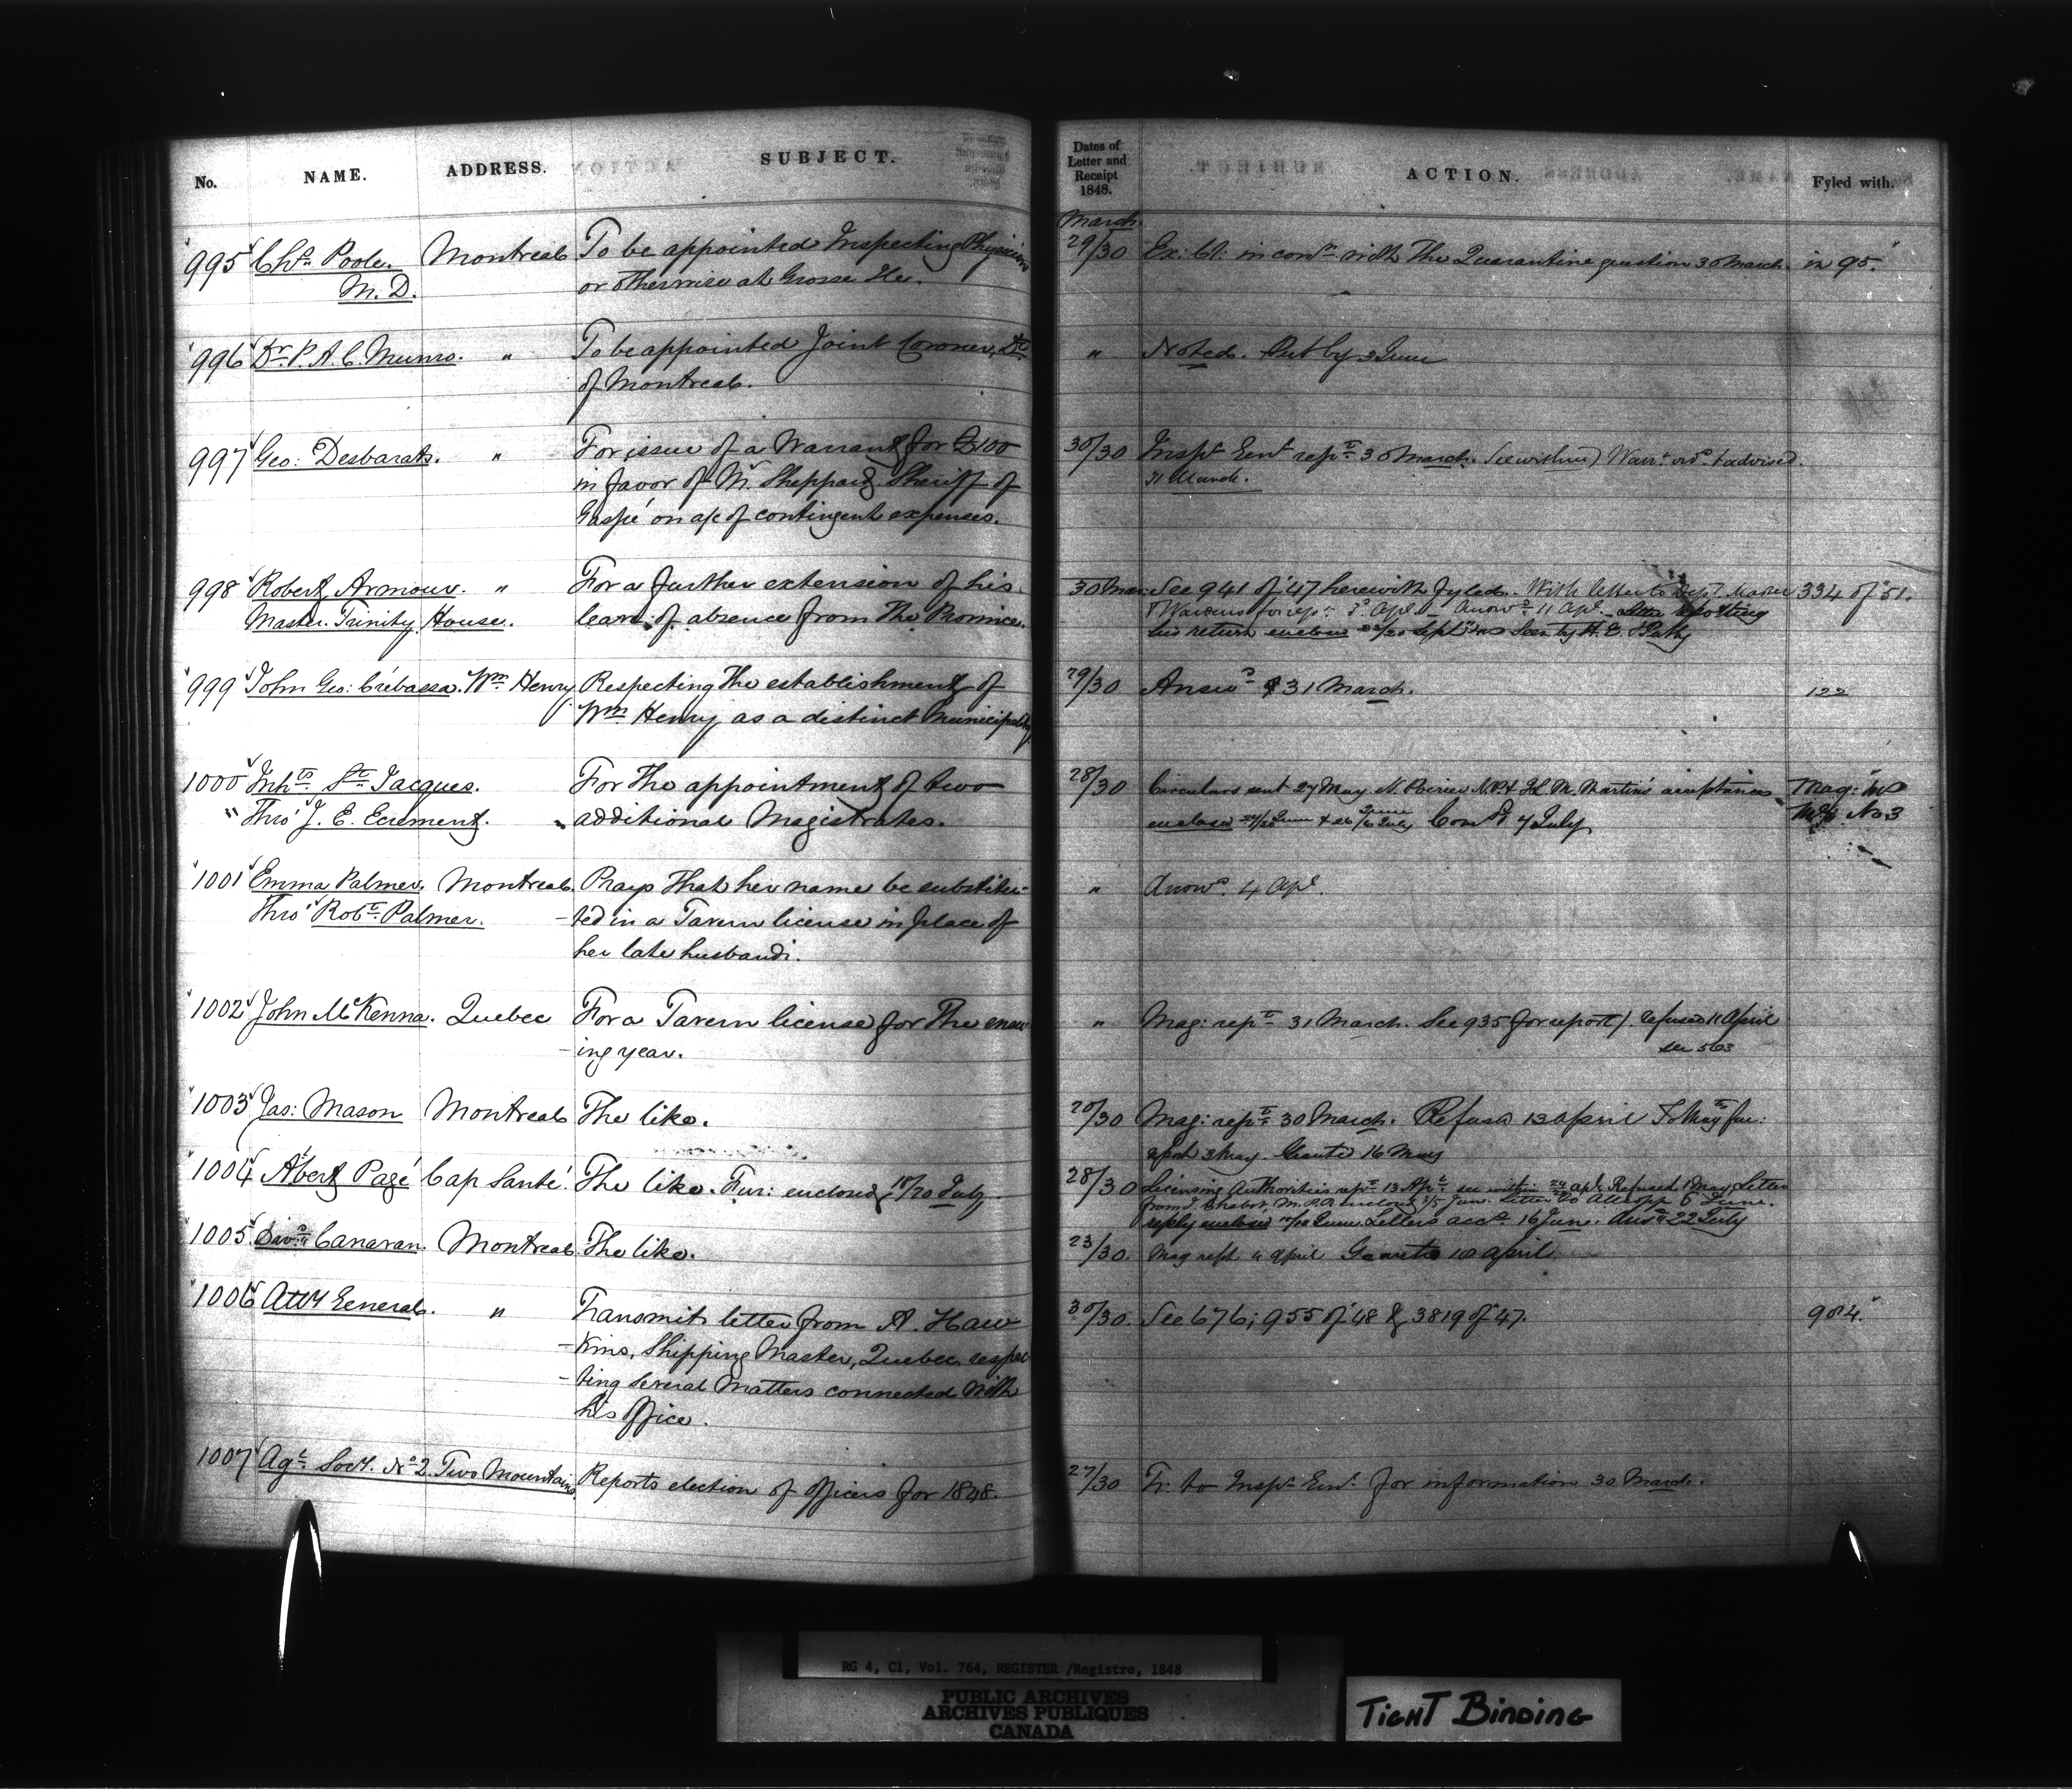 No. NAME. ADDRESS. SUBJECT. Dates of Letter and Receipt 1848. ACTION. Fyled with.
March
995 Chs. Poole. Montreal To be appointed Inspecting Physician 29/30 Ex: Cl: in conn with the Quarantine question 30 March. in 95.
M.D. or otherwise at Grosse Ile.
996 Dr. P. A. C. Munro. " To be appointed Joint Coroner, Dt " Noted. Put by 3 June
of Montreal.
997 Geo: Desbarats. " For issue of a Warrant for £100 30/30 Inspr Genl rept 30 March. See within) Warrt ord & advised.
in favor of Mr. Sheppard Sheriff of 31 March.
Gaspé on a/c of contingent expenses.
998 Robert Armour. " For a further extension of his 30 Mar: See 941 of '47 herewith fyled. With letter to Dept. Master 334 of '51.
Master Trinity House. leave of absence from the Province. & Wardens for rept: Apl. Answd 11 Apl.
his return enclosd 22/20 Sept
999 John Geo: Crébassa. Wm Henry. Respecting the establishment of 29/30 Answd 31 March. 122
Wm Henry as a distinct Municipality
1000 Inhts St. Jacques. For the appointment of two 28/30 Circulars sent 27 May. N. Poirier N.P. & M. Martin's acceptances Mag:
" Thro' J. E. Ecrement. additional Magistrates. enclosed 7 July No 3
1001 Emma Palmer. Montreal Prays that her name be substitu- " Answd. 4 Apl.
Thro' Robt. Palmer. -ted in a Tavern license in place of
her late husband.
1002 John McKenna. Quebec For a Tavern license for the ensu " Mag: rept 31 March. See 935 for report). Refused 11 April
-ing year. see 5103
1003 Jas: Mason Montreal The like. 20/30 Mag: rept 30 March. Refused 13 April To Mag for fur:
3 May. Granted 16 May
1004 Albert Pagé Cap Santé. The like. Fur: enclosed 18/20 July. 28/30 Licensing Authorities rept 13 Apl see within 24 Apl. Refused 1 May. Letter
from J. Chabot, M.P.P. enclosg 3/5 June. Letter to Allsopp 6 June.
reply enclosed June. Letters accd 16 June. Ansd 22 July
1005 Davd Canavan. Montreal The like. 23/30. Mag rept 4 April Granted 10 April.
1006 Atty General. " Transmits letter from A. Haw 30/30. See 676; 955 of '48 & 3819 of '47. 904.
-kins, Shipping Master, Quebec, respec
-ting several matters connected with
his office.
1007 Agl Socy. No 2. Two Mountains. Reports election of officers for 1848. 27/30 Fr. to Inspr Genl. for information 30 March.
RG 4, C1, Vol. 764, REGISTER /Registre, 1848
PUBLIC ARCHIVES
ARCHIVES PUBLIQUES
CANADA
TIGHT BINDING